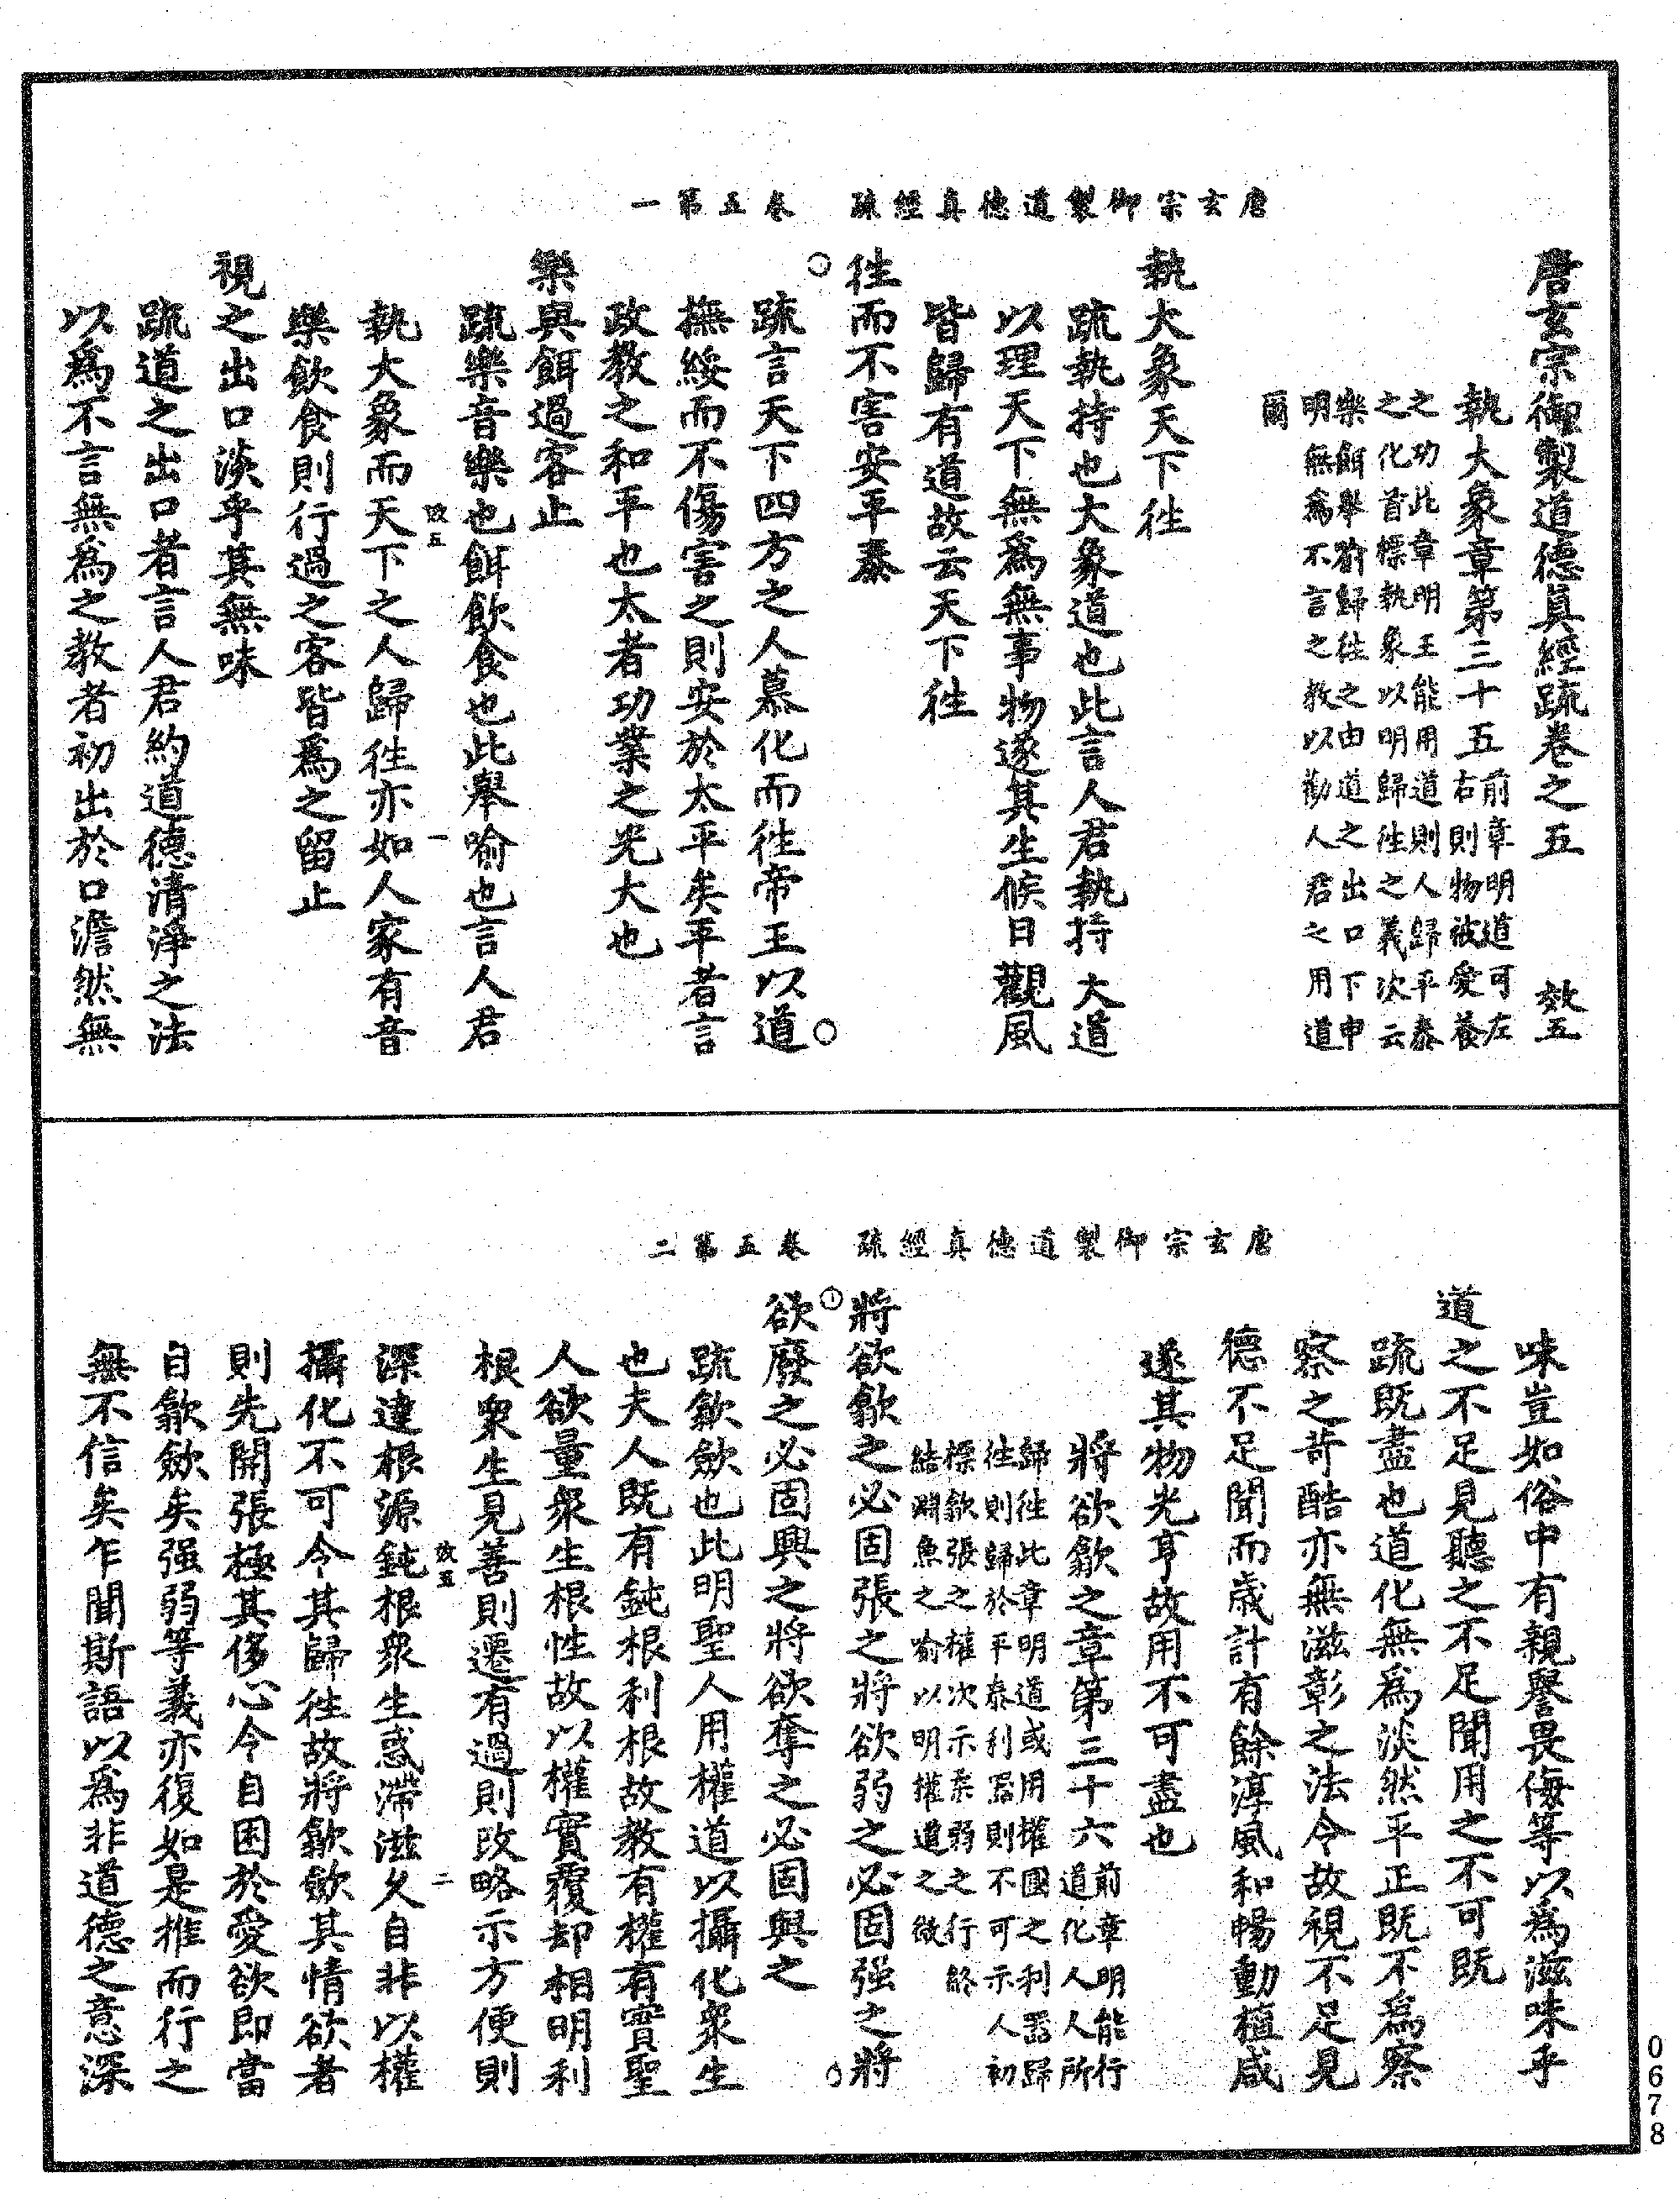 唐玄宗御製道德真經疏　卷五第一
唐玄宗御製道德真經疏卷之五　效五
執大象章第三十五
前章明道可左
右則物被愛養
之功此章明王能用道則人歸平泰
之化首標執象以明歸往之義次云
樂餌舉喻歸往之由道之出口下申
明無為不言之教以勸人君之用道
爾
執大象天下往
疏執持也大象道也此言人君執持大道
以理天下無為無事物遂其生候日觀風
皆歸有道故云天下往
往而不害安平泰
疏言天下四方之人慕化而往帝王以道
撫綏而不傷害之則安於太平矣平者言
政教之和平也太者功業之光大也
樂與餌過客止
疏樂音樂也餌飲食也此舉喻也言人君
效五　一
執大象而天下之人歸往亦如人家有音
樂飲食則行過之客皆為之留止
視之出口淡乎其無味
疏道之出口者言人君約道德清淨之法
以為不言無為之教者初出於口澹然無
唐玄宗御製道德真經疏　卷五第二
味豈如俗中有親譽畏侮等以為滋味乎
道之不足見聽之不足聞用之不可既
疏既盡也道化無為淡然平正既不為察
察之苛酷亦無滋彰之法令故視不足見
德不足聞而歲計有餘淳風和暢動植咸
遂其物光亨故用不可盡也
將欲歙之章第三十六
前章明能行
道化人人所
歸往此章明道或用權國之利器歸
往則歸於平泰利器則不可示人初
標歙張之權次示柔弱之行終
結淵魚之喻以明權道之微
將欲歙之必固張之將欲弱之必固强之將
欲廢之必固興之將欲奪之必固與之
疏歙斂也此明聖人用權道以攝化衆生
也夫人既有鈍根利根故教有權有實聖
人欲量衆生根性故以權實覆却相明利
根衆生見善則遷有過則改略示方便則
效五　二
深達根源鈍根衆生惑滯滋久自非以權
攝化不可令其歸往故將歙斂其情欲者
則先開張極其侈心令自困於愛欲即當
自歙斂矣强弱等義亦復如是推而行之
無不信矣乍聞斯語以為非道德之意深
0678